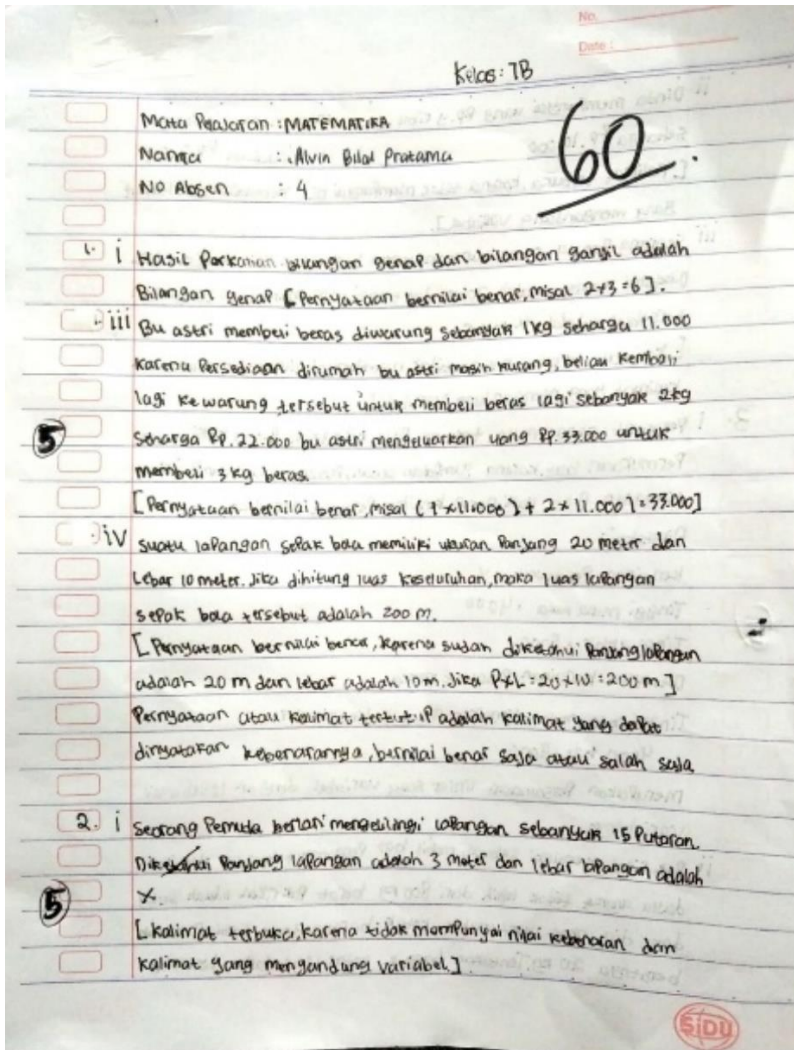 No.
Date :
Kelas : 7B
Mata Pelajaran : MATEMATIKA
Nama : Alvin Bilal Pratama
No Absen : 4
60
1. i Hasil Perkalian bilangan genap dan bilangan ganjil adalah
Bilangan genap [Pernyataan bernilai benar, misal 2x3=6].
iii Bu astri membeli beras diwarung sebanyak 1kg seharga 11.000
Karena Persediaan dirumah bu astri masih kurang, beliau kembali
lagi ke warung tersebut untuk membeli beras lagi sebanyak 2kg
5 Seharga Rp. 22.000 bu astri mengeluarkan uang Rp. 33.000 untuk
membeli 3 kg beras.
[Pernyataan bernilai benar, misal (1 x 11.000) + 2 x 11.000) = 33.000]
iv suatu lapangan sepak bola memiliki ukuran Panjang 20 meter dan
Lebar 10 meter. Jika dihitung luas keseluruhan, maka luas lapangan
sepak bola tersebut adalah 200 m.
[Pernyataan bernilai benar, karena sudah diketahui Panjang lapangan
adalah 20 m dan lebar adalah 10 m. Jika PxL = 20x10 = 200 m]
Pernyataan atau Kalimat tertutup adalah kalimat yang dapat
dinyatakan kebenarannya, bernilai benar saja atau salah saja
2. i Seorang Pemuda berlari mengelilingi lapangan sebanyak 15 Putaran
Diketahui Panjang lapangan adalah 3 meter dan lebar lapangan adalah
5 x.
[Kalimat terbuka, karena tidak mempunyai nilai kebenaran dan
kalimat yang mengandung variabel].
SIDU